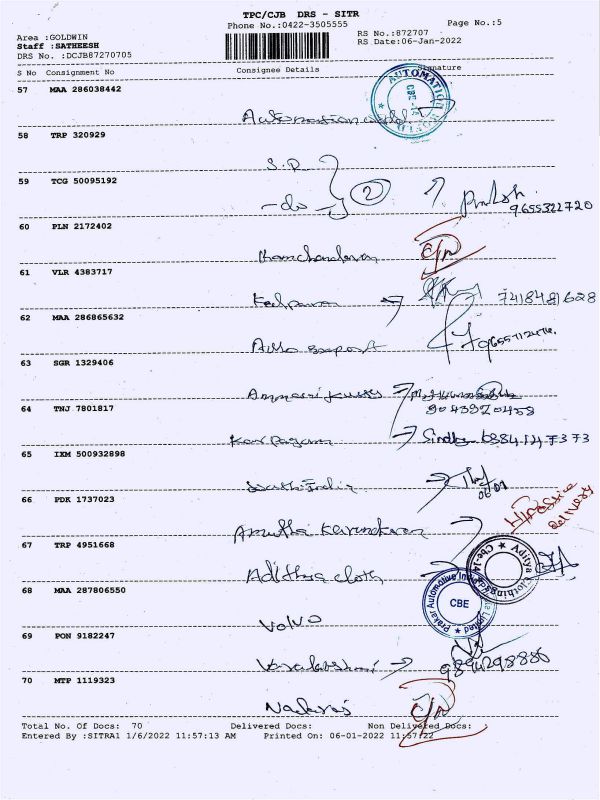 TPC/CJB DRS - SITR
Phone No.:0422-3505555
Page No.:5
Area :GOLDWIN
Staff :SATHEESH
DRS No. :DCJB87270705
RS No.:872707
RS Date:06-Jan-2022
S No Consignment No Consignee Details Signature
57 MAA 286038442
AUTOMATION WORLD CBE-14
58 TRP 320929
S.R.
59 TCG 50095192
-do- 2
9655322720
60 PLN 2172402
61 VLR 4383717
Kalpana 7418481628
62 MAA 286865632
63 SGR 1329406
64 TNJ 7801817
9043920458
Karpagam
65 IXM 500932898
South India 06/01
66 PDK 1737023
Amutha
67 TRP 4951668
Adithya cloth
Aditya Clothing Cbe-14
68 MAA 287806550
Prakar Automotive CBE
Volvo
69 PON 9182247
Varalakshmi 9894298886
70 MTP 1119323
Nadaraj
Total No. Of Docs: 70 Delivered Docs: Non Delivered Docs:
Entered By :SITRA1 1/6/2022 11:57:13 AM Printed On: 06-01-2022 11:57:22